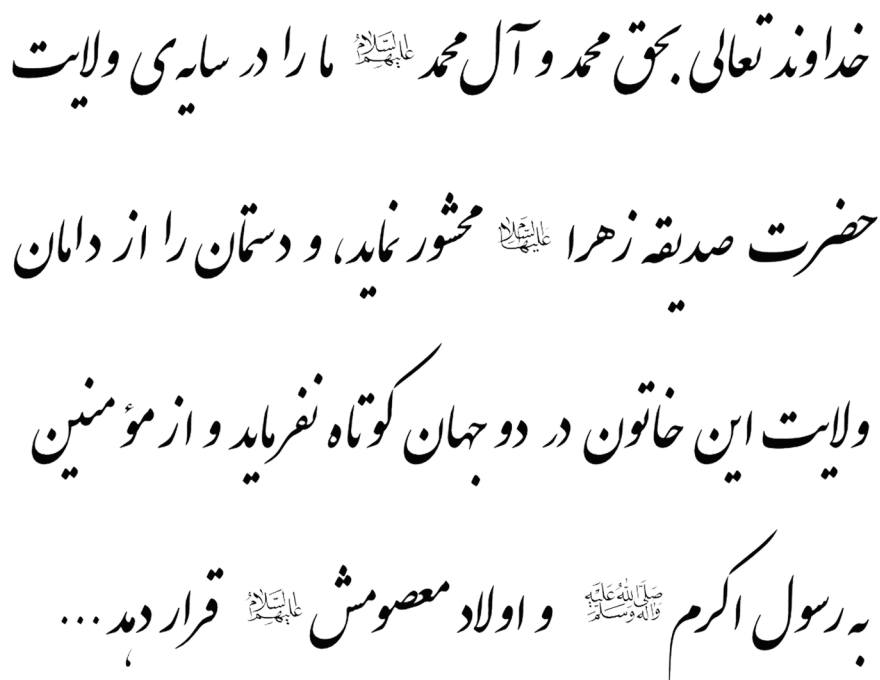 خداوند تعالی بحق محمد و آل محمد علیهم السلام ما را در سایه‌ی ولایت
حضرت صدیقه زهرا علیها السلام محشور نماید، و دستمان را از دامان
ولایت این خاتون در دو جهان کوتاه نفرماید و از مؤمنین
به رسول اکرم صلی الله علیه وآله وسلم و اولاد معصومش علیهم السلام قرار دهد ...